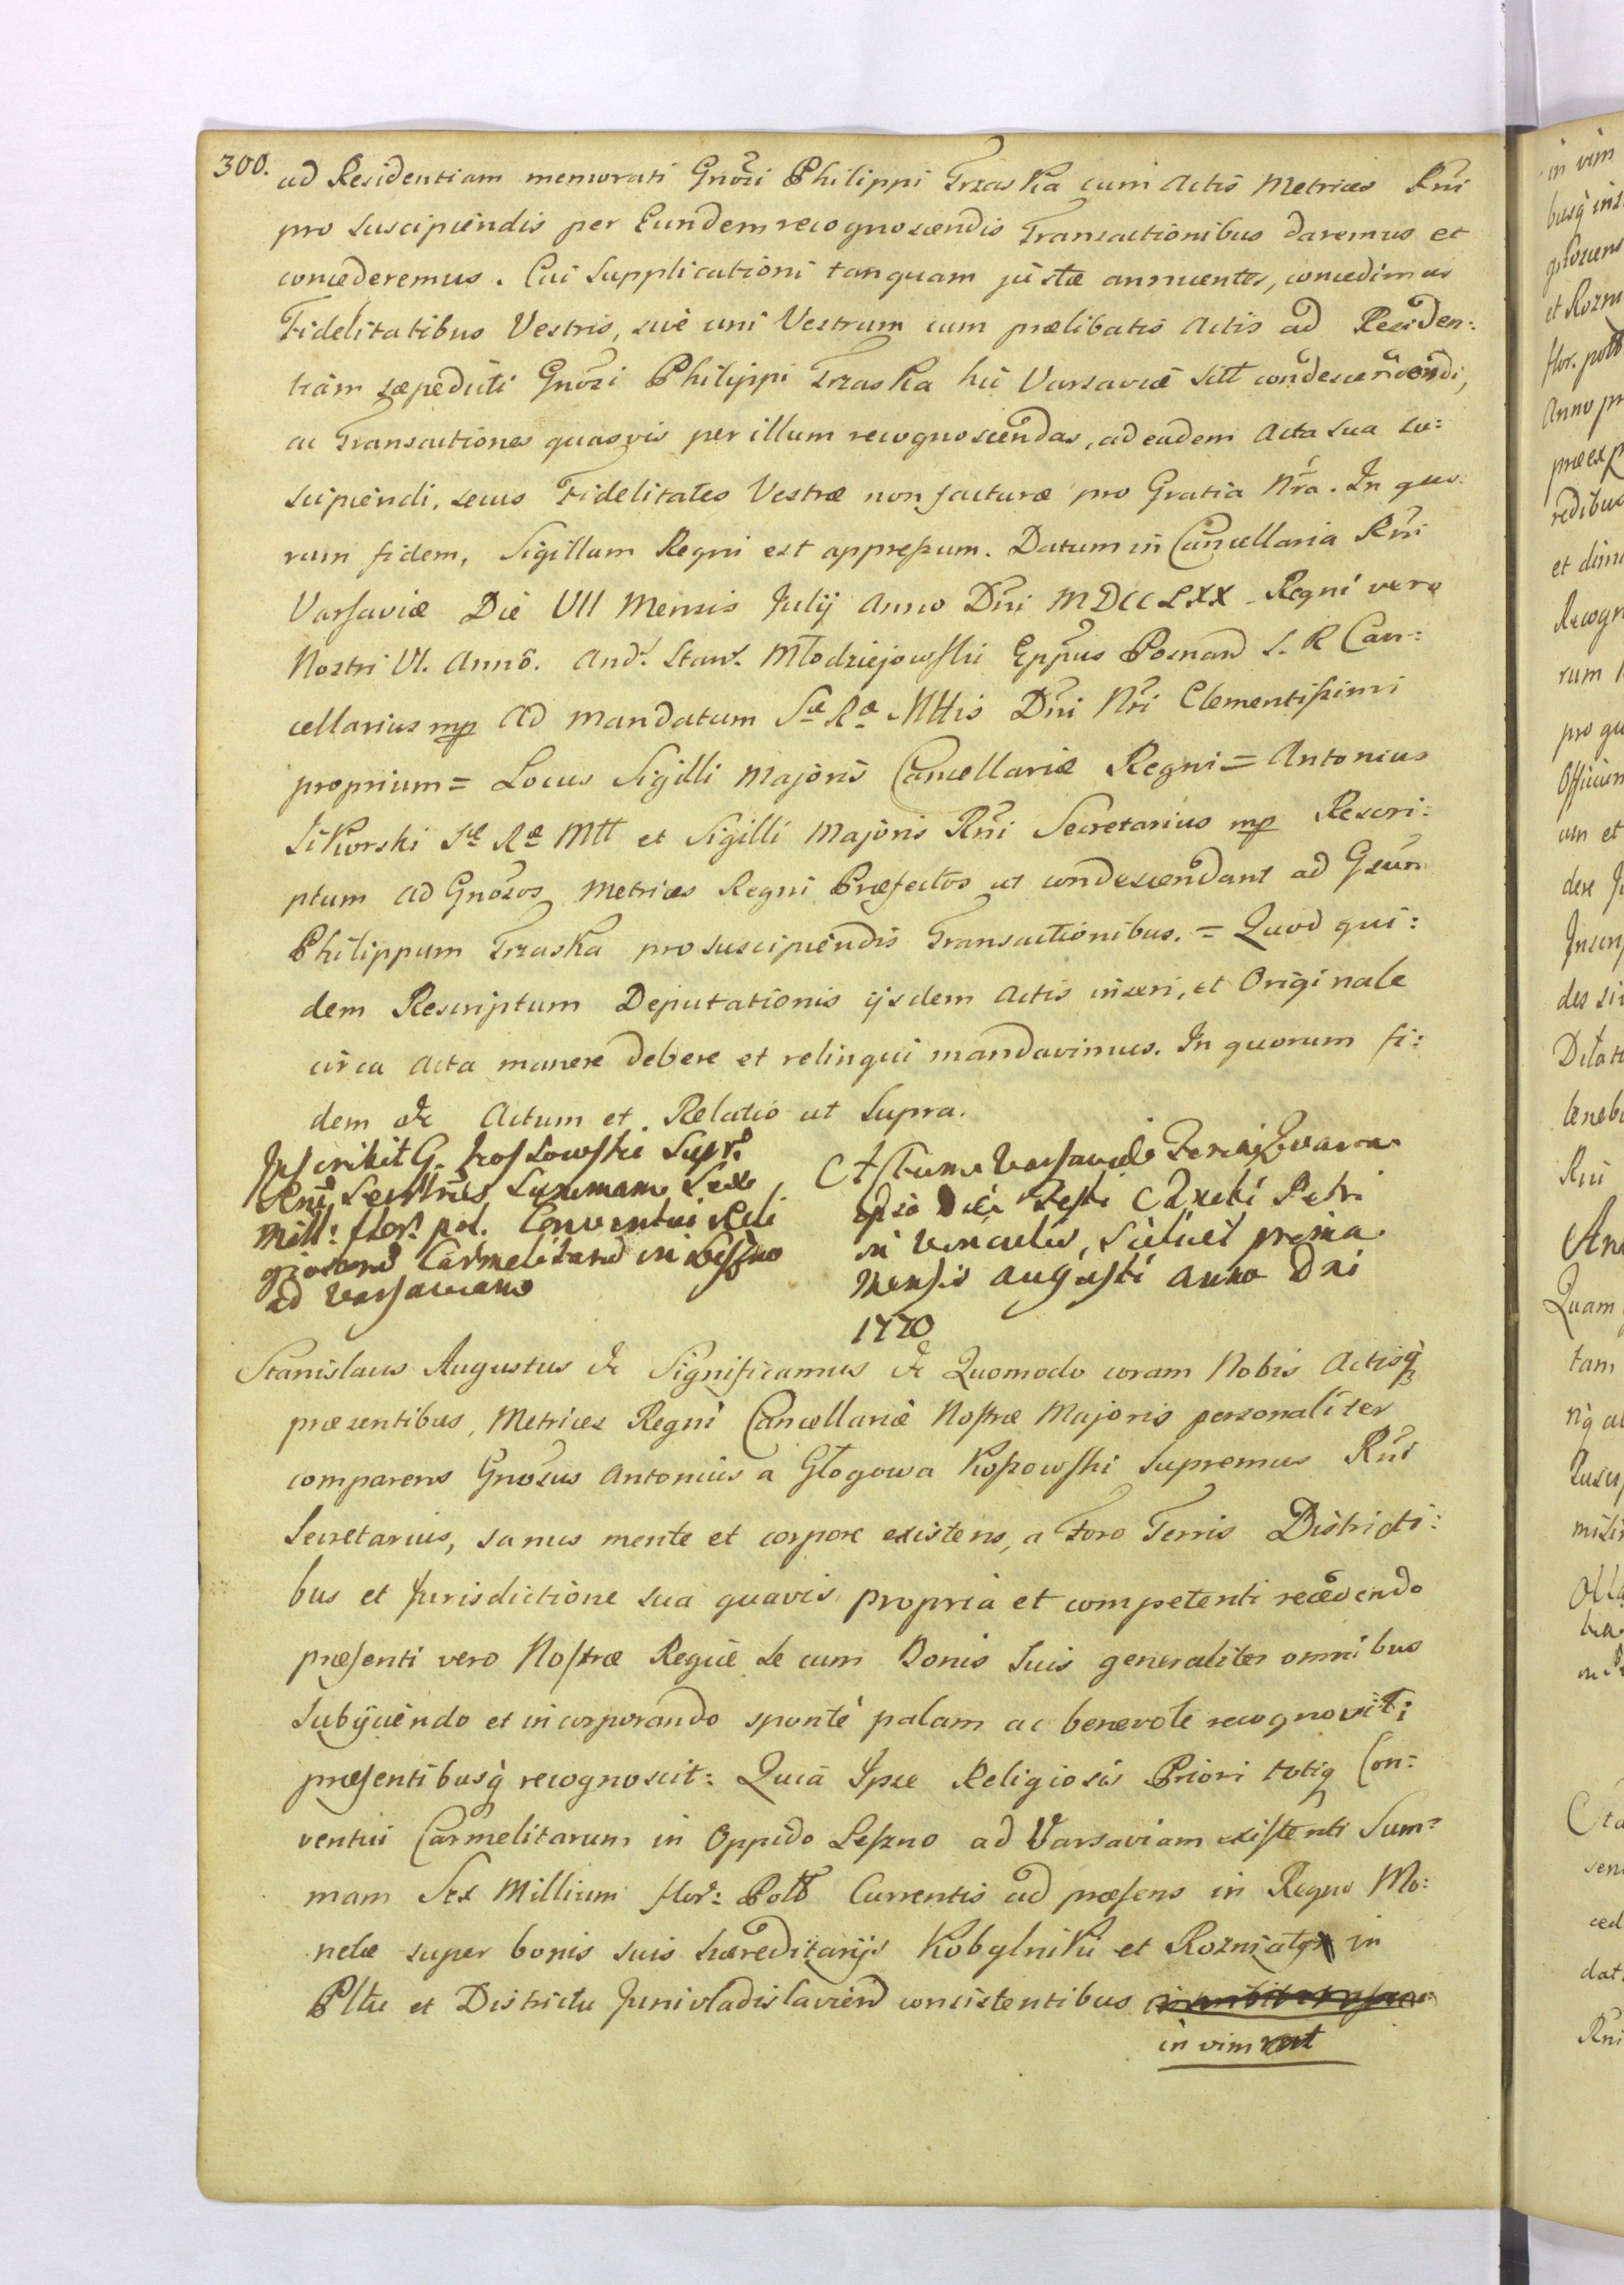 300.
ad Residentiam memorati Gnosi Philippi Trzaska cum Actis Metrices Rni
pro suscipiendis per Eundem recognoscendis Transactionibus daremus et
concederemus. Cui supplicationi tanquam justæ annuentes, concedimus
Fidelitatibus Vestris, sive uni Vestrum cum prælibatis Actis ad Residen:
tiam sæpedicti Gnosi Philippi Trzaska hic Varsaviæ sitt condescendendi,
ac Transactiones quasvis per illum recognoscendas, ad eadem Acta sua su:
scipiendi, secus Fidelitates Vestræ non facturæ pro Gratia Nra. In quo
rum fidem, Sigillum Regni est appressum. Datum in Cancellaria Rni
Varsaviæ Die VII Mensis Julij Anno Dni MDCCLXX Regni vero
Nostri VI. Anno. And. Stan. Młodziejowski Eppus Posnan S. R Can:
cellarius mp Ad mandatum Sæ Ræ Mttis Dni Nri Clementissimi
proprium = Locus Sigilli Majoris Cancellariæ Regni = Antonius
Sikorski Sæ Ræ Mtt et Sigilli Majoris Rni Secretarius mp Rescri:
ptum Ad Gnosos Metrices Regni Præfectos ut condescendant ad Gsum
Philippum Trzaska pro suscipiendis Transactionibus. = Quod qui:
dem Rescriptum Deputationis ijsdem Actis inseri, et Originale
circa Acta manere debere et relinqui mandavimus. In quorum fi:
dem &c Actum et Relatio ut supra.
Inscribit G. Kossowski Supr.
Rni Secrtrius Summam Sex
Mill: flor. pol. Conventui Reli
giosorum Carmelitarum in Leszno
ad Varsaviam
Actum Varsaviæ Feria Quarta
ipso Die Festi Sancti Petri
in Vinculis, Scilicet prima
Mensis Augusti Anno Dni
1770
Stanislaus Augustus &c Significamus &c Quomodo coram Nobis Actisq
præsentibus, Metrices Regni Cancellariæ Nostræ Majoris personaliter
comparens Gnosus Antonius a Głogowa Kossowski Supremus Rni
Secretarius, sanus mente et corpore existens, a Foro Terris Districti:
bus et Jurisdictione sua quavis propria et competenti recedendo
præsenti vero Nostræ Regiæ se cum Bonis suis generaliter omnibus
Subijciendo et incorporando sponte palam ac benevole recognovit;
præsentibusq recognoscit: Quia Ipse Religiosis Priori totiq Con:
ventui Carmelitarum in Oppido Leszno ad Varsaviam existenti Sum:
mam Sex Millium flor: Poll Currentis ad præsens in Regno Mo:
netæ super bonis suis hæreditarijs Kobylniki et Rozniaty in
Plttu et Districtu Junivladislavien consistentibus
in vim
in vim
busq ins
gnoscens
et Rozni
flor. poll
Anno pr
præexp
redibus
et dim
Recogn
rum
pro qu
Officium
um et
dere
Inscrip
des
Rni
Quam
tam
Suscip
dat.
Rni